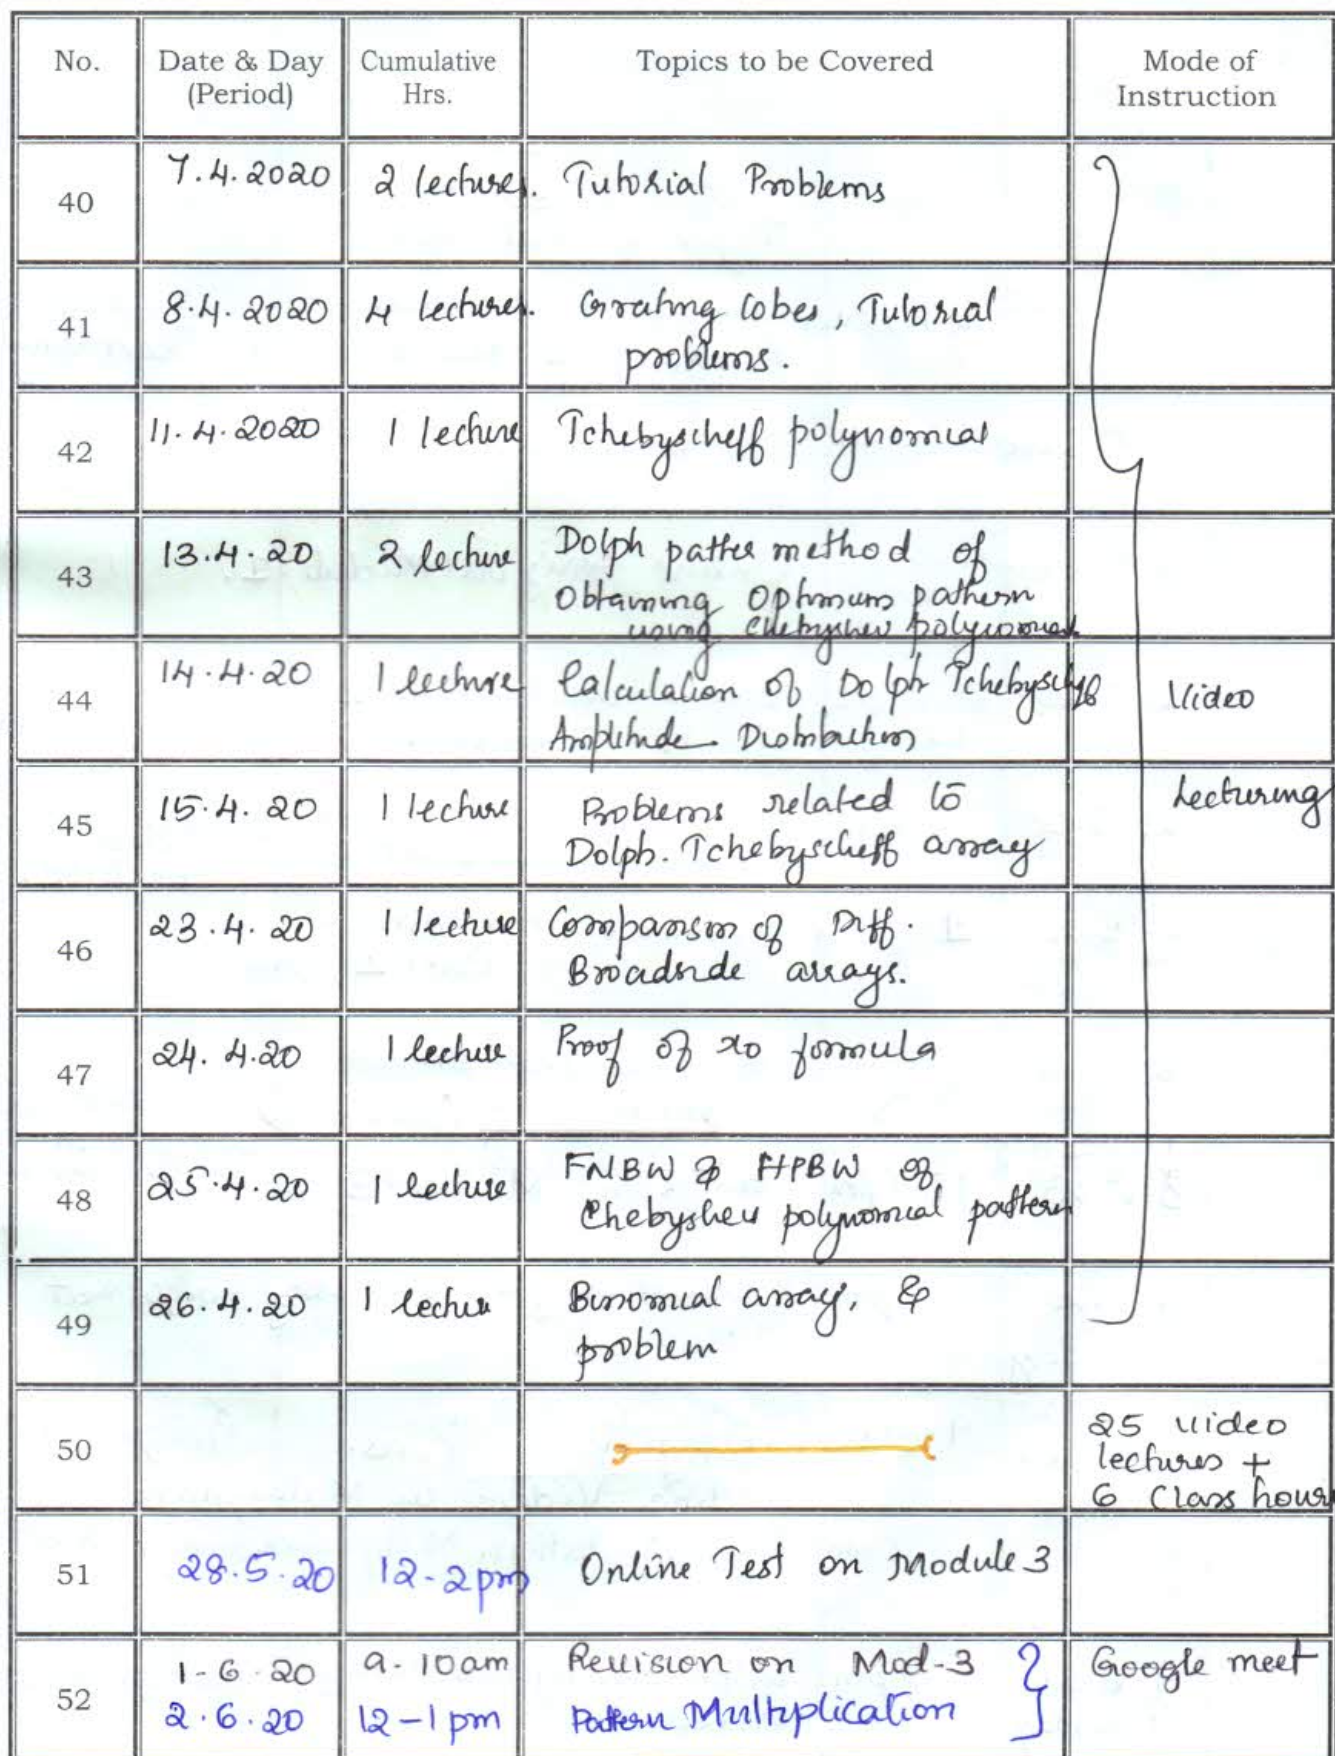 No. Date & Day Cumulative Topics to be Covered Mode of
(Period) Hrs. Instruction
40 7.4.2020 2 lectures. Tutorial Problems
41 8.4.2020 4 lectures. Grating lobes, Tutorial
problems.
42 11.4.2020 1 lecture Tchebyscheff polynomial
43 13.4.20 2 lecture Dolph patter method of
Obtaining Optimum pattern
using Chebyshev polynomial
44 14.4.20 1 lecture Calculation of Dolph Tchebyscheff Video
Amplitude Distribution
45 15.4.20 1 lecture Problems related to Lecturing
Dolph. Tchebyscheff array
46 23.4.20 1 lecture Comparison of Diff.
Broadside arrays.
47 24.4.20 1 lecture Proof of x0 formula
48 25.4.20 1 lecture FNBW & HPBW of
Chebyshev polynomial pattern
49 26.4.20 1 lecture Binomial array, &
problem
50 25 video
lectures +
6 Class hours
51 28.5.20 12-2pm Online Test on Module 3
52 1-6-20 9-10am Revision on Mod-3 Google meet
2.6.20 12-1pm Pattern Multiplication